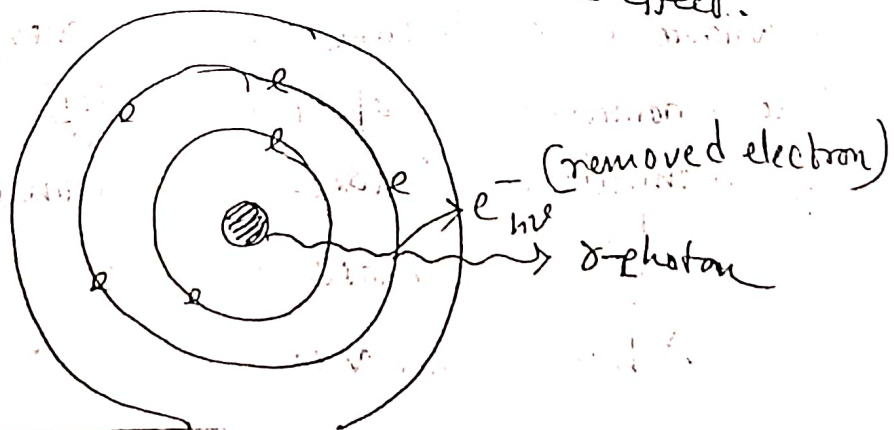 e e
e
e
e⁻ (removed electron)
hν
γ-photon
e
e